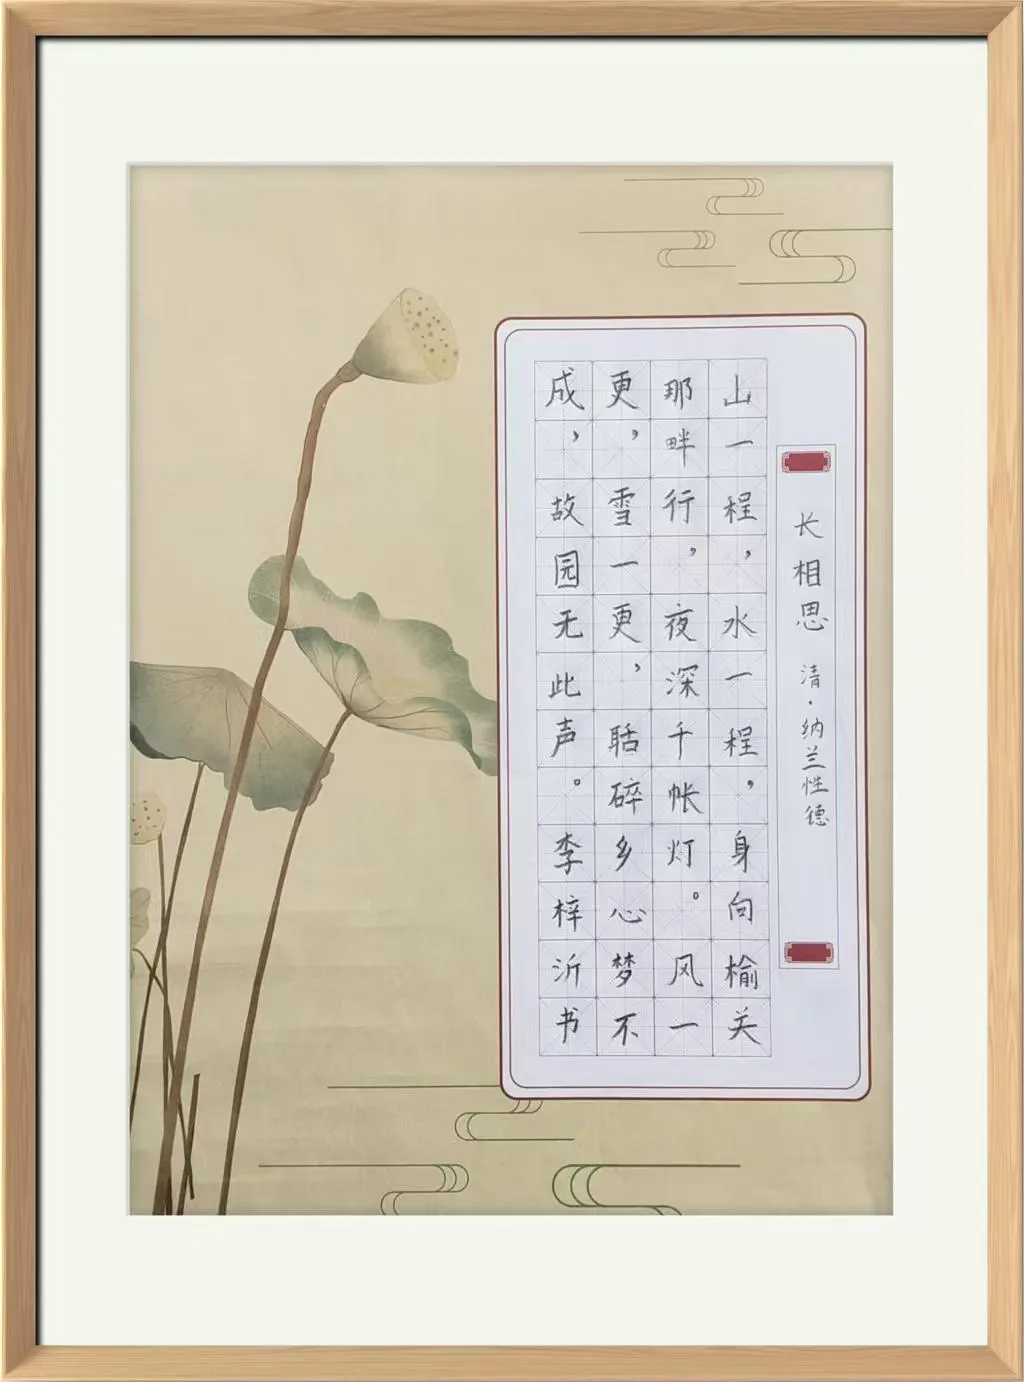 长相思 清·纳兰性德
山一程，水一程，身向榆关
那畔行，夜深千帐灯。风一
更，雪一更，聒碎乡心梦不
成，故园无此声。李梓沂书